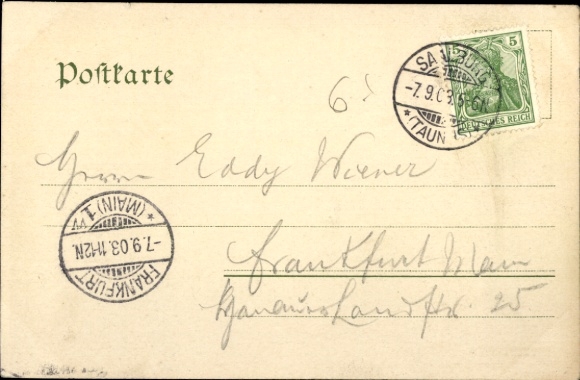 Postkarte
5 5
SAALBURG
-7.9.03. 5-6N.
*(TAUNUS)*
DEUTSCHES REICH
6!
Herrn Eddy Wiener
* (MAIN) 1 *
VV
-7.9.03.11-12N.
FRANKFURT
Frankfurt Main
Hanauer Landstr. 25